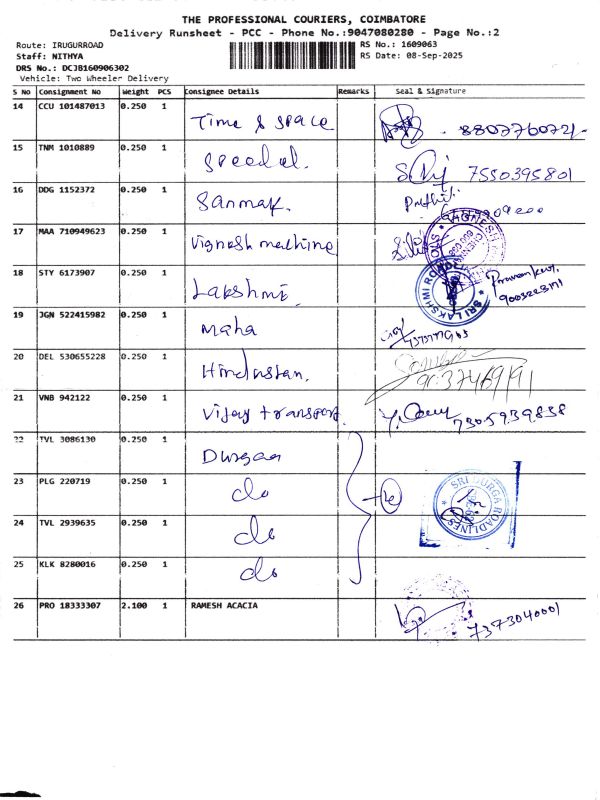 THE PROFESSIONAL COURIERS, COIMBATORE
Delivery Runsheet - PCC - Phone No.:9047080280 - Page No.:2
Route: IRUGURROAD RS No.: 1609063
Staff: NITHYA RS Date: 08-Sep-2025
DRS No.: DCJB160906302
Vehicle: Two Wheeler Delivery
S No Consignment No Weight PCS Consignee Details Remarks Seal & Signature
14 CCU 101487013 0.250 1 Time & space 8807760721
15 TNM 1010889 0.250 1 7550395801
16 DDG 1152372 0.250 1 Sanmar
17 MAA 710949623 0.250 1 Vignesh machine
18 STY 6173907 0.250 1 Lakshmi SRI LAKSHMI
19 JGN 522415982 0.250 1 Maha
20 DEL 530655228 0.250 1 Hindustan.
21 VNB 942122 0.250 1 Vijay transport 7305939838
22 TVL 3086130 0.250 1 Durgaa
23 PLG 220719 0.250 1 do SRI DURGA ROADLINES
24 TVL 2939635 0.250 1 do
25 KLK 8280016 0.250 1 do
26 PRO 18333307 2.100 1 RAMESH ACACIA 7373040001